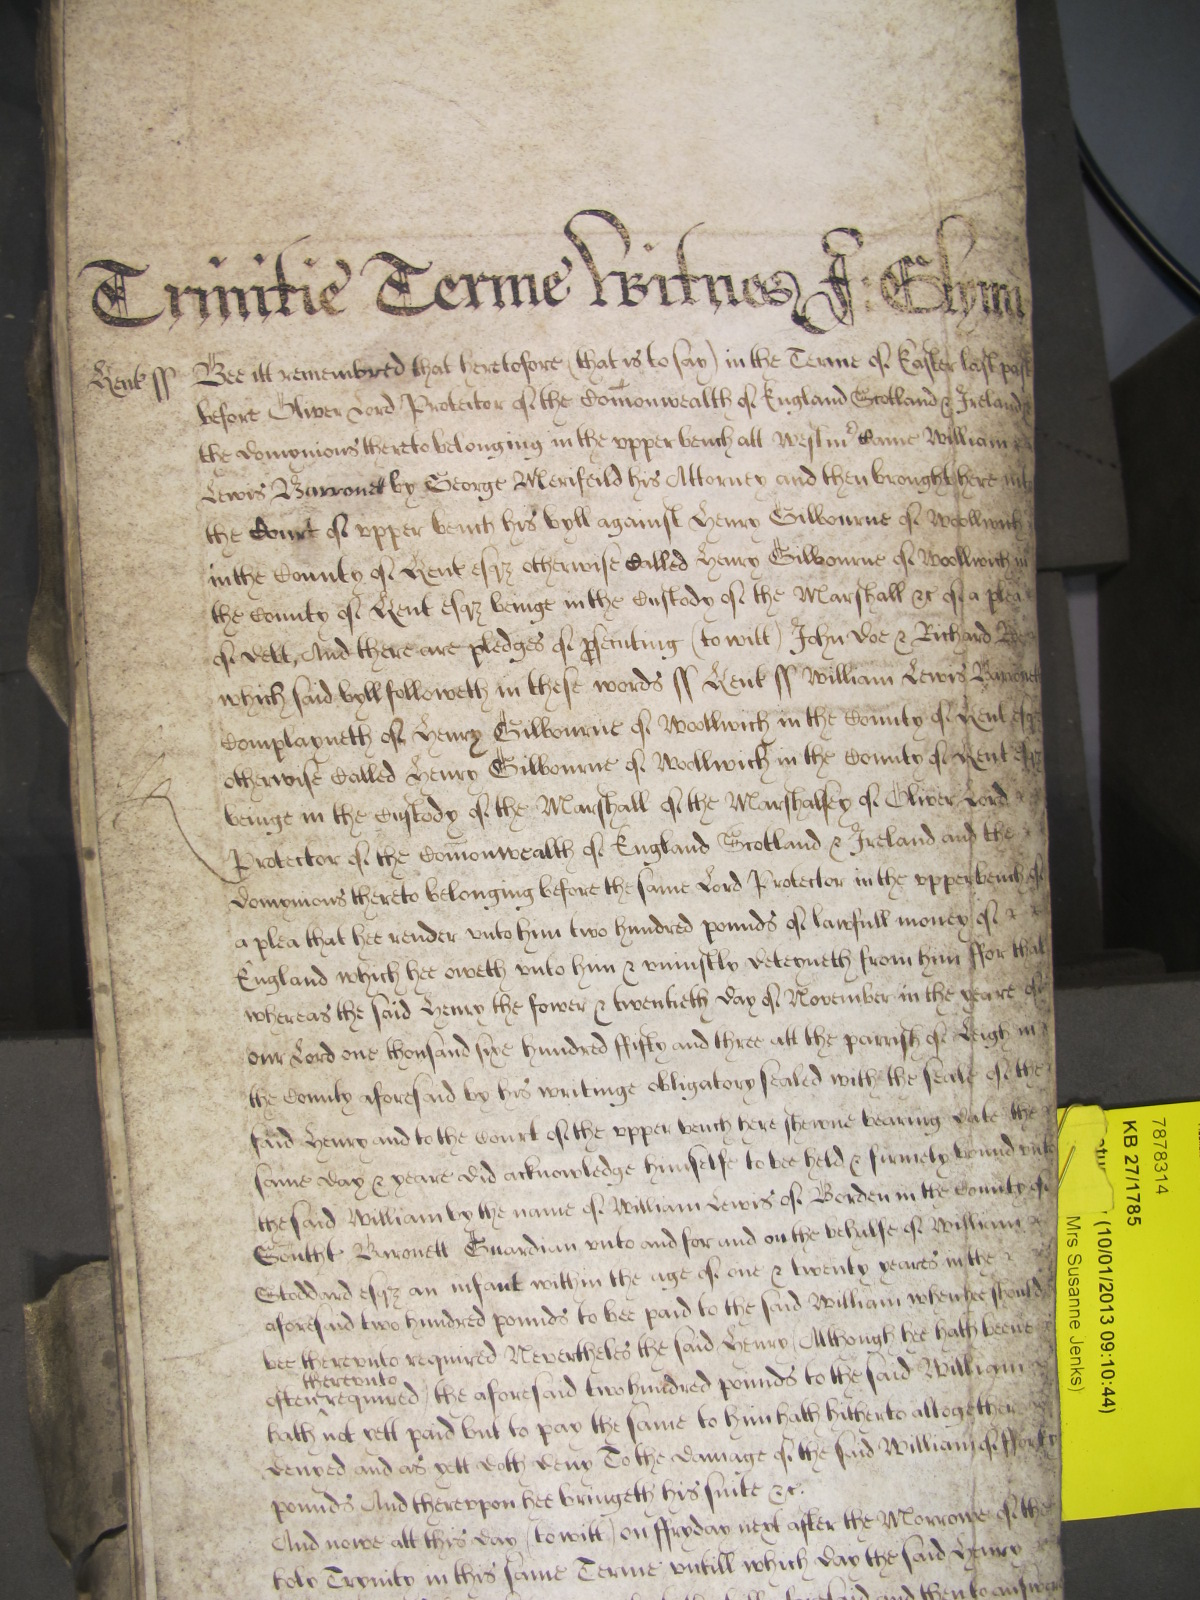 Trinitie Terme Witnes J: Glynn
Kent ss Bee itt remembred that heretofore (that is to say) in the Terme of Easter last past
before Oliver Lord Protector of the Com̄onwealth of England Scotland & Ireland &
the domynions thereto belonging in the vpper bench att Westm̄ Came William
Lewis Barronet by George Merifeild his Attorney and then brought here into
the Court of vpper bench his byll against Henry Gilbourne of Woollwich
in the County of Kent esqz otherwise Called Henry Gilbourne of Woollwich in
the County of Kent esqz beinge in the Custody of the Marshall &c of a plea
of debt, And there are pledges of p̱secuting (to witt) John Doe & Richard Roe
which said byll followeth in these words ss Kent ss William Lewis Barronett
Complayneth of Henry Gilbourne of Woollwich in the County of Kent esqz
otherwise Called Henry Gilbourne of Woollwich in the County of Kent esqz
beinge in the Custody of the Marshall of the Marshalsey of Oliver Lord
Protector of the Com̄onwealth of England Scotland & Ireland and the
domynions thereto belonging before the same Lord Protector in the vpper bench of
a plea that hee render vnto him two hundred pounds of lawfull money of
England which hee oweth vnto him & vniustly deteyneth from him ffor that
whereas the said Henry the fower & twentieth day of November in the yeare of
our Lord one thousand sixe hundred ffifty and three att the parrish of Leigh in
the County aforesaid by his writinge obligatory sealed with the seale of the
said Henry and to the Court of the vpper bench here shewne bearing date the
same day & yeare did acknowledge himselfe to bee held & firmely bound vnto
the said William by the name of William Lewis of Borden in the County of
Southt Baronett Guardian vnto and for and on the behalfe of William
Stoddard esqz an infant within the age of one & twenty yeares in the
aforesaid two hundred pounds to bee paid to the said William when hee should
bee therevnto required Nevertheles the said Henry (Although hee hath beene
therevnto
often required) the aforesaid two hundred pounds to the said William
hath not yett paid but to pay the same to him hath hitherto altogether
denyed and as yett doth deny To the damage of the said William of fforty
pounds And therevpon hee bringeth his suite &c.
And nowe att this day (to witt) on ffryday next after the Morrowe of the
holy Trynity in this same Terme vntill which day the said Henry
and then to answere
7878314
KB 27/1785
(10/01/2013 09:10:44)
Mrs Susanne Jenks)